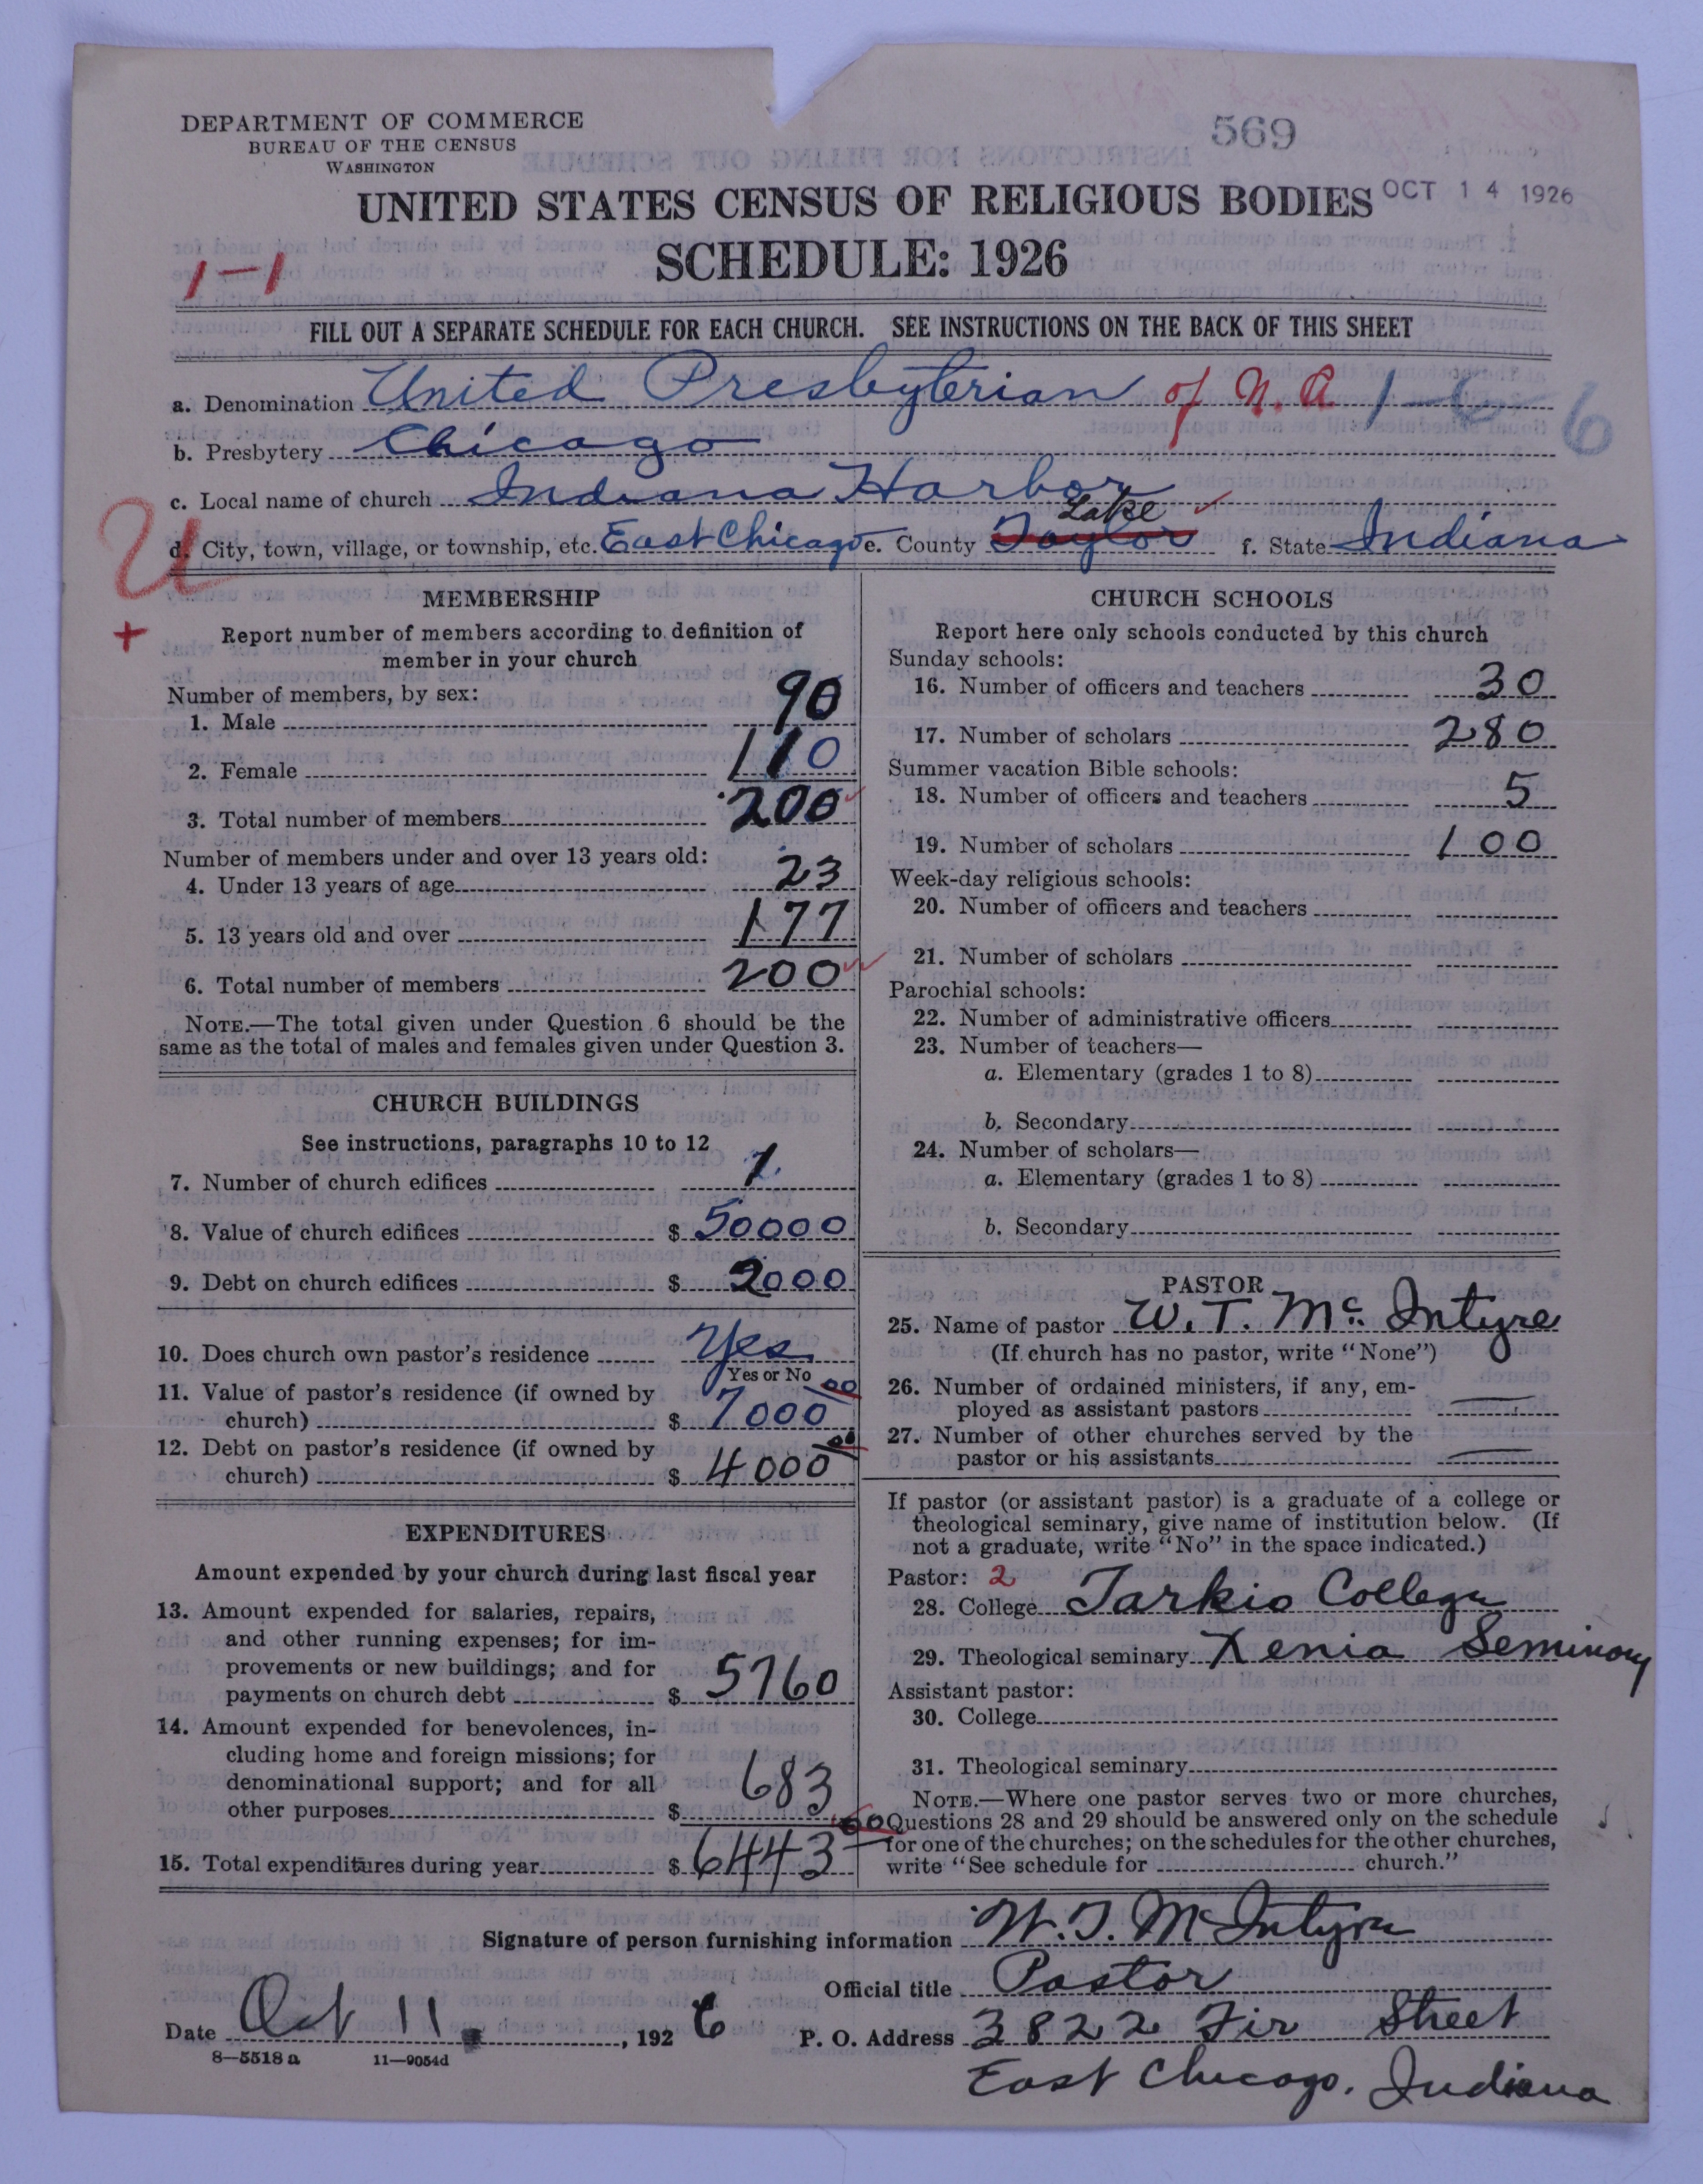 DEPARTMENT OF COMMERCE
BUREAU OF THE CENSUS
WASHINGTON
569
UNITED STATES CENSUS OF RELIGIOUS BODIES
OCT 14 1926
SCHEDULE: 1926
1-1
FILL OUT A SEPARATE SCHEDULE FOR EACH CHURCH. SEE INSTRUCTIONS ON THE BACK OF THIS SHEET
a. Denomination United Presbyterian of N.A. 1-6 6
b. Presbytery Chicago
c. Local name of church Indiana Harbor
U
d. City, town, village, or township, etc. East Chicago e. County Taylor Lake f. State Indiana
+
MEMBERSHIP
Report number of members according to definition of
member in your church
Number of members, by sex:
1. Male 90
2. Female 110
3. Total number of members 200
Number of members under and over 13 years old:
4. Under 13 years of age 23
5. 13 years old and over 177
6. Total number of members 200
NOTE.—The total given under Question 6 should be the
same as the total of males and females given under Question 3.
CHURCH BUILDINGS
See instructions, paragraphs 10 to 12
7. Number of church edifices 1
8. Value of church edifices $ 50000
9. Debt on church edifices $ 2000
10. Does church own pastor's residence Yes
Yes or No
11. Value of pastor's residence (if owned by
church) $ 7000 00
12. Debt on pastor's residence (if owned by
church) $ 4000 00
EXPENDITURES
Amount expended by your church during last fiscal year
13. Amount expended for salaries, repairs,
and other running expenses; for im-
provements or new buildings; and for
payments on church debt $ 5760
14. Amount expended for benevolences, in-
cluding home and foreign missions; for
denominational support; and for all
other purposes $ 683
15. Total expenditures during year $ 6443 00
CHURCH SCHOOLS
Report here only schools conducted by this church
Sunday schools:
16. Number of officers and teachers 30
17. Number of scholars 280
Summer vacation Bible schools:
18. Number of officers and teachers 5
19. Number of scholars 100
Week-day religious schools:
20. Number of officers and teachers
21. Number of scholars
Parochial schools:
22. Number of administrative officers
23. Number of teachers—
a. Elementary (grades 1 to 8)
b. Secondary
24. Number of scholars—
a. Elementary (grades 1 to 8)
b. Secondary
PASTOR
25. Name of pastor W. T. Mc Intyre
(If church has no pastor, write "None")
26. Number of ordained ministers, if any, em-
ployed as assistant pastors —
27. Number of other churches served by the
pastor or his assistants —
If pastor (or assistant pastor) is a graduate of a college or
theological seminary, give name of institution below. (If
not a graduate, write "No" in the space indicated.)
Pastor: 2
28. College Tarkio College
29. Theological seminary Xenia Seminary
Assistant pastor:
30. College
31. Theological seminary
NOTE.—Where one pastor serves two or more churches,
Questions 28 and 29 should be answered only on the schedule
for one of the churches; on the schedules for the other churches,
write "See schedule for church."
Signature of person furnishing information W. T. Mc Intyre
Official title Pastor
Date Oct 11, 1926 P. O. Address 3822 Fir Street
8—5518a 11—9054d
East Chicago, Indiana